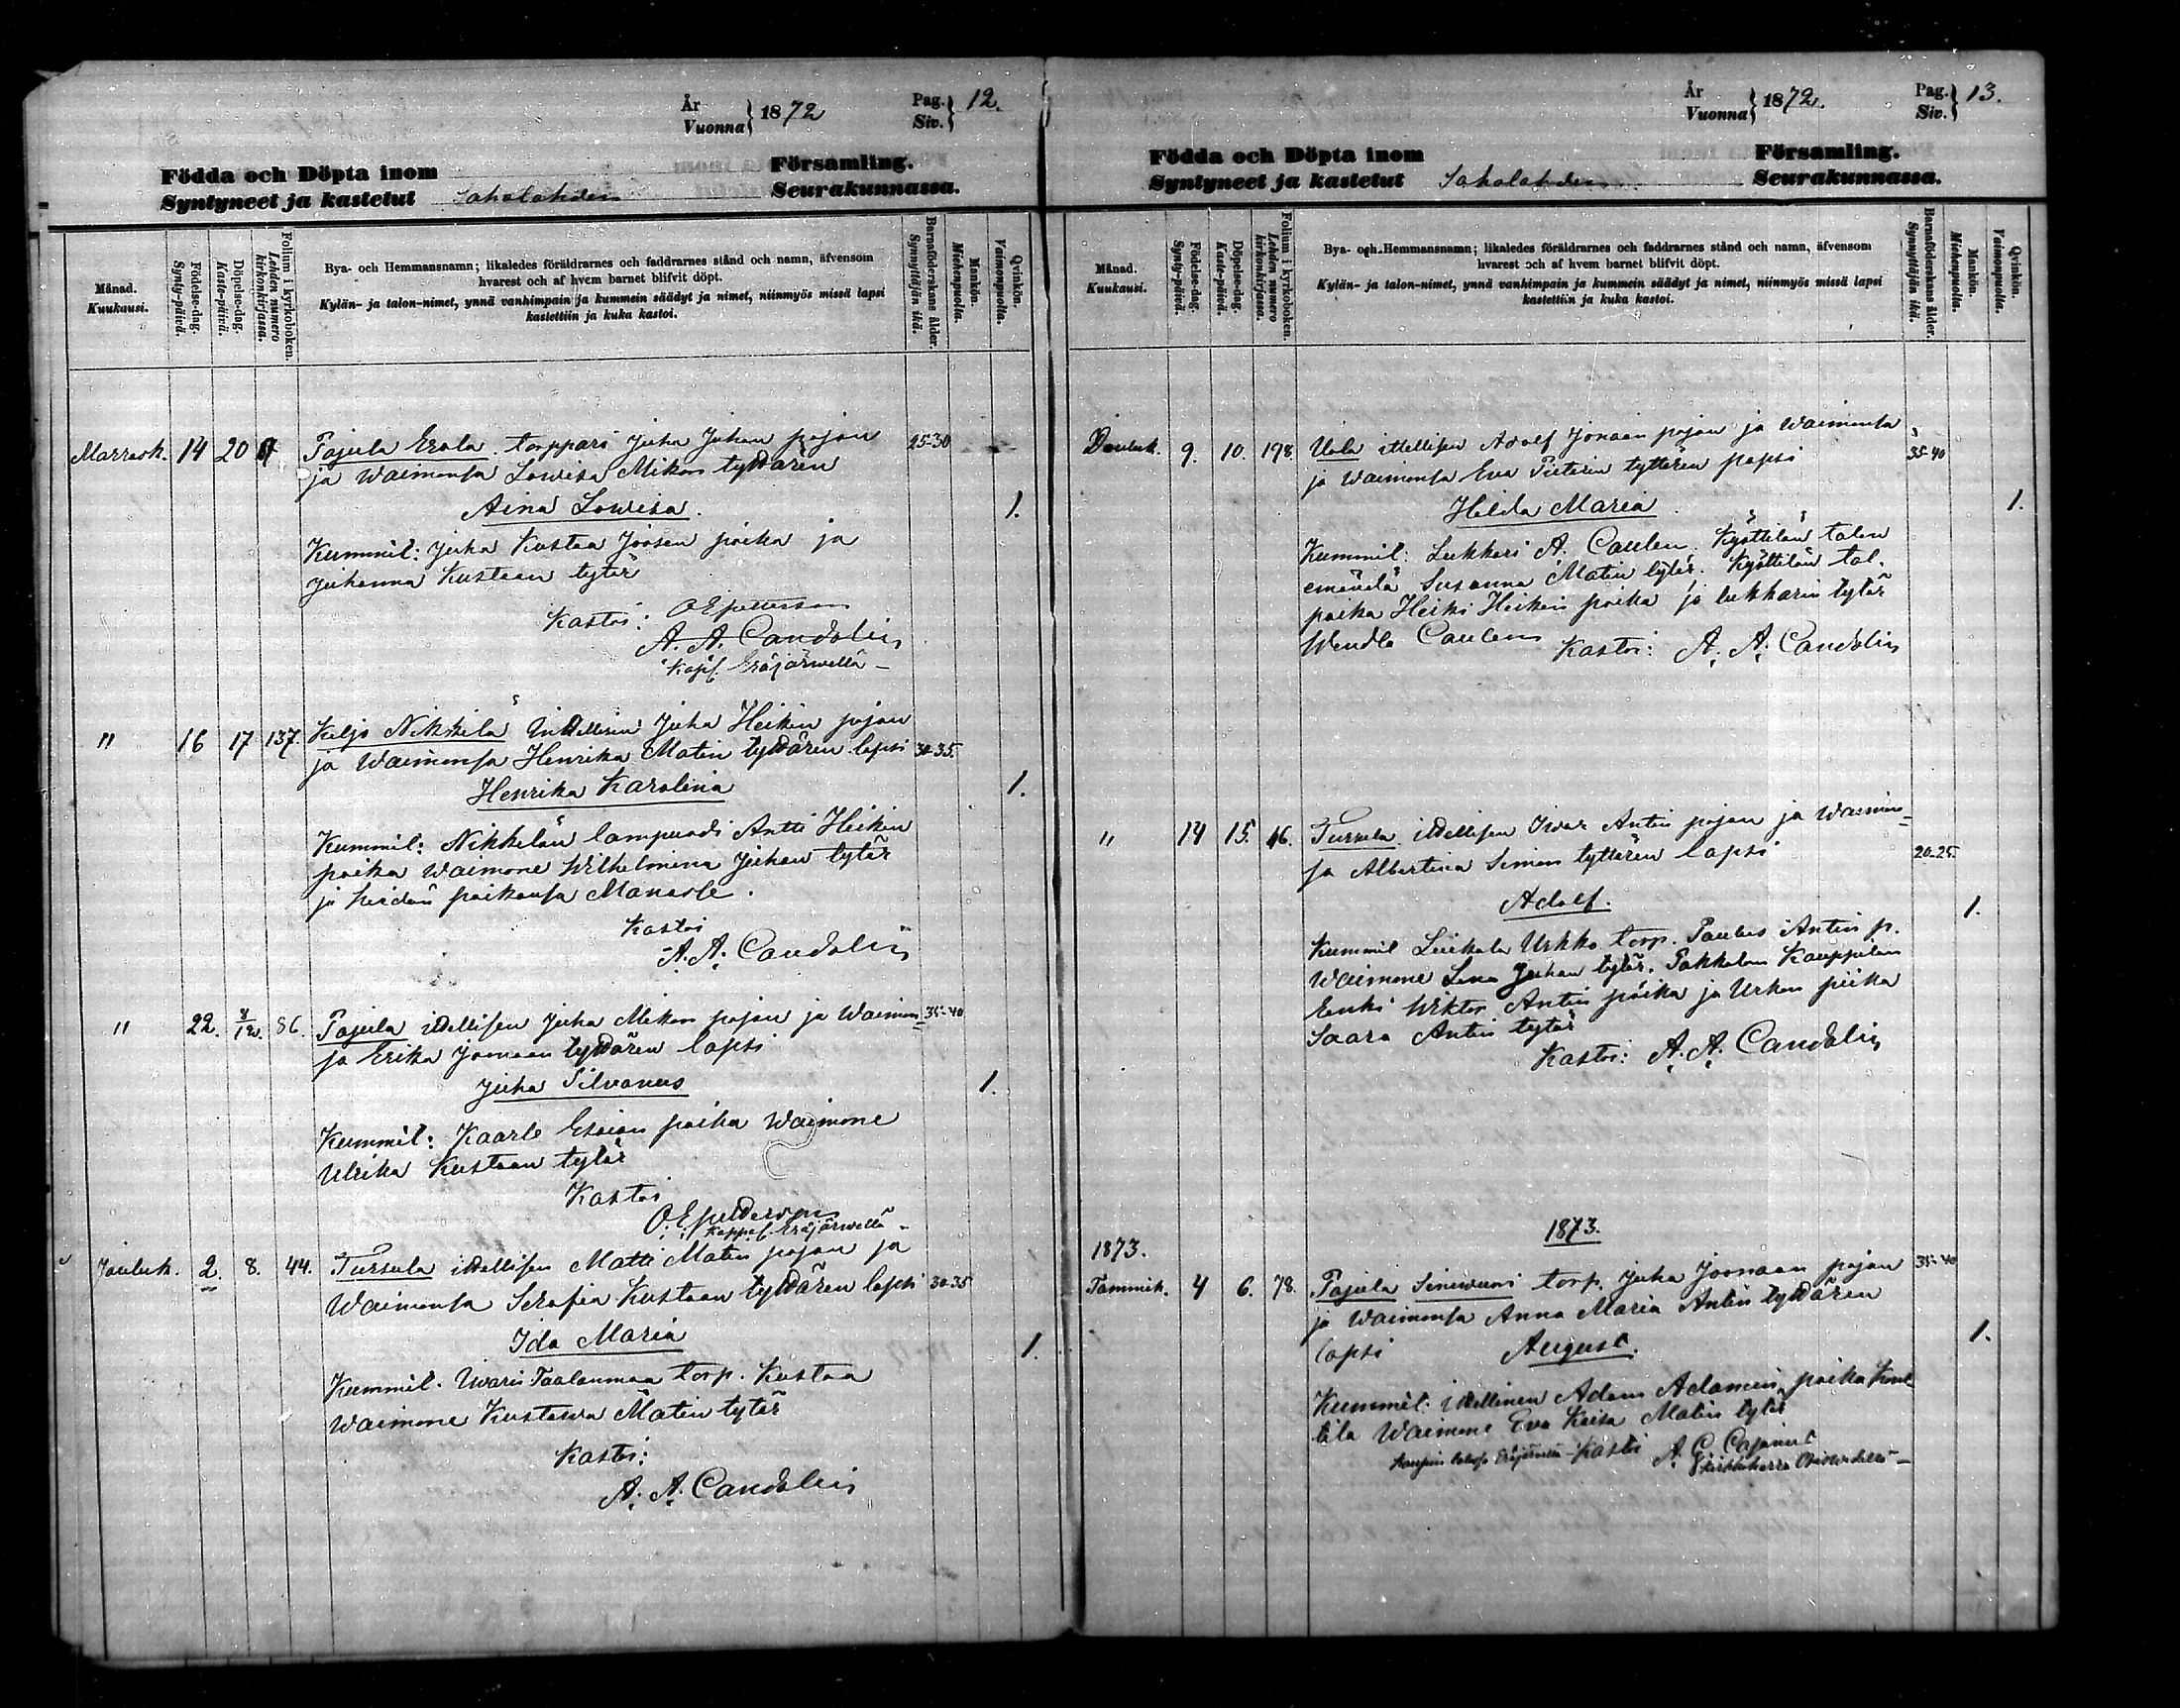 År
Vuonna } 1872
Pag.
Siv. } 12.
Födda och Döpta inom Församling.
Syntyneet ja kastetut Sahalahden Seurakunnassa.
Månad.
Kuukausi.
Födelse-dag.
Synty-päivä.
Döpelse-dag.
Kaste-päivä.
Folium i kyrkoboken.
Lehden numero
kirkonkirjassa.
Bya- och Hemmansnamn; likaledes föräldrarnes och faddrarnes stånd och namn, äfvensom
hvarest och af hvem barnet blifvit döpt.
Kylän- ja talon-nimet, ynnä vanhimpain ja kummein säädyt ja nimet, niinmyös missä lapsi
kastettiin ja kuka kastoi.
Barnaföderskans ålder.
Synnyttäjän ikä.
Mankön.
Miehenpuolta.
Qvinkön.
Vaimonpuolta.
Marrask. 14 20 Pajula Erola torppari Juha Juhan pojan 25-30
ja Waimonsa Lowisa Mikon tyttären
Aina Lowisa. 1.
Kummit: Juha Kustaa Joosen poika ja
Juhanna Kustaan tytär
Kastoi: O E Petterson
A. A. Candolin
Kapl. Eräjärwellä –
" 16 17 137. Keljo Nikkilä Juha Heikin pojan
ja Waimonsa Henrika Matin tyttären lapsi 30-35.
Henrika Karolina 1.
Kummit: Nikkilän lampuodi Antti Heikin
poika Waimone Wilhelmina Juhan tytär
ja heidän poikansa Manasse.
Kastoi
A. A. Candolin
" 22. 8/12. 86. Pajula itellisen Juha Mikon pojan ja Waimon= 35-40
sa Erika Joonaan tyttären lapsi
Juha Silvanus 1.
Kummit: Kaarle Esaian poika Waimone
Ulrika Kustaan tytär
Kastoi
O. E. Petterson
Kappal. Eräjärwellä –
Jouluk. 2. 8. 44. Tursula itellisen Matti Matin pojan ja
Waimonsa Serafia Kustaan tyttären lapsi 30-35
Ida Maria 1.
Kummit. Taalanmaa torp. Kustaa
Waimone Kustawa Matin tytär
Kastoi:
A. A. Candolin
År
Vuonna } 1872.
Pag.
Siv. } 13.
Födda och Döpta inom Församling.
Syntyneet ja kastetut Sahalahden Seurakunnassa.
Månad.
Kuukausi.
Födelse-dag.
Synty-päivä.
Döpelse-dag.
Kaste-päivä.
Folium i kyrkoboken.
Lehden numero
kirkonkirjassa.
Bya- och Hemmansnamn; likaledes föräldrarnes och faddrarnes stånd och namn, äfvensom
hvarest och af hvem barnet blifvit döpt.
Kylän- ja talon-nimet, ynnä vanhimpain ja kummein säädyt ja nimet, niinmyös missä lapsi
kastettiin ja kuka kastoi.
Barnaföderskans ålder.
Synnyttäjän ikä.
Mankön.
Miehenpuolta.
Qvinkön.
Vaimonpuolta.
Jouluk. 9. 10. 198. itellisen Adolf Jonaan pojan ja Waimonsa
ja Waimonsa Eva tyttären lapsi 35-40
Hilda Maria 1.
Kummit: Lukkari A. Caulen, Kyöttilän talon
emäntä Susanna Matin tytär. Kyöttilän tal.
poika Heikki Heikin poika ja lukkarin tytär
Wendla Caulen Kastoi: A. A. Candolin
" 14 15. 46. Tursula itellisen Iwar Antin pojan ja Waimon=
sa Albertina Simon tyttären lapsi 20-25.
Adolf. 1.
Kummit Urkko torp. Paulus Antin p.
Waimone Lena Juhan tytär. Pakkalan Kauppilan
renki Wiktor Antin poika ja Urkon piika
Saara Antin tytär
Kastoi: A. A. Candolin
1873.
1873.
Tammik. 4 6. 78. Pajula torp. Juha Joonaan pojan 35-40
ja Waimonsa Anna Maria Antin tyttären
lapsi August. 1.
Kummit: itellinen Adam Adamin poika
Waimone Eva Kaisa Matin tytär
Kastoi A. G. Cajanus
Kirkkoherra Oriwedellä –